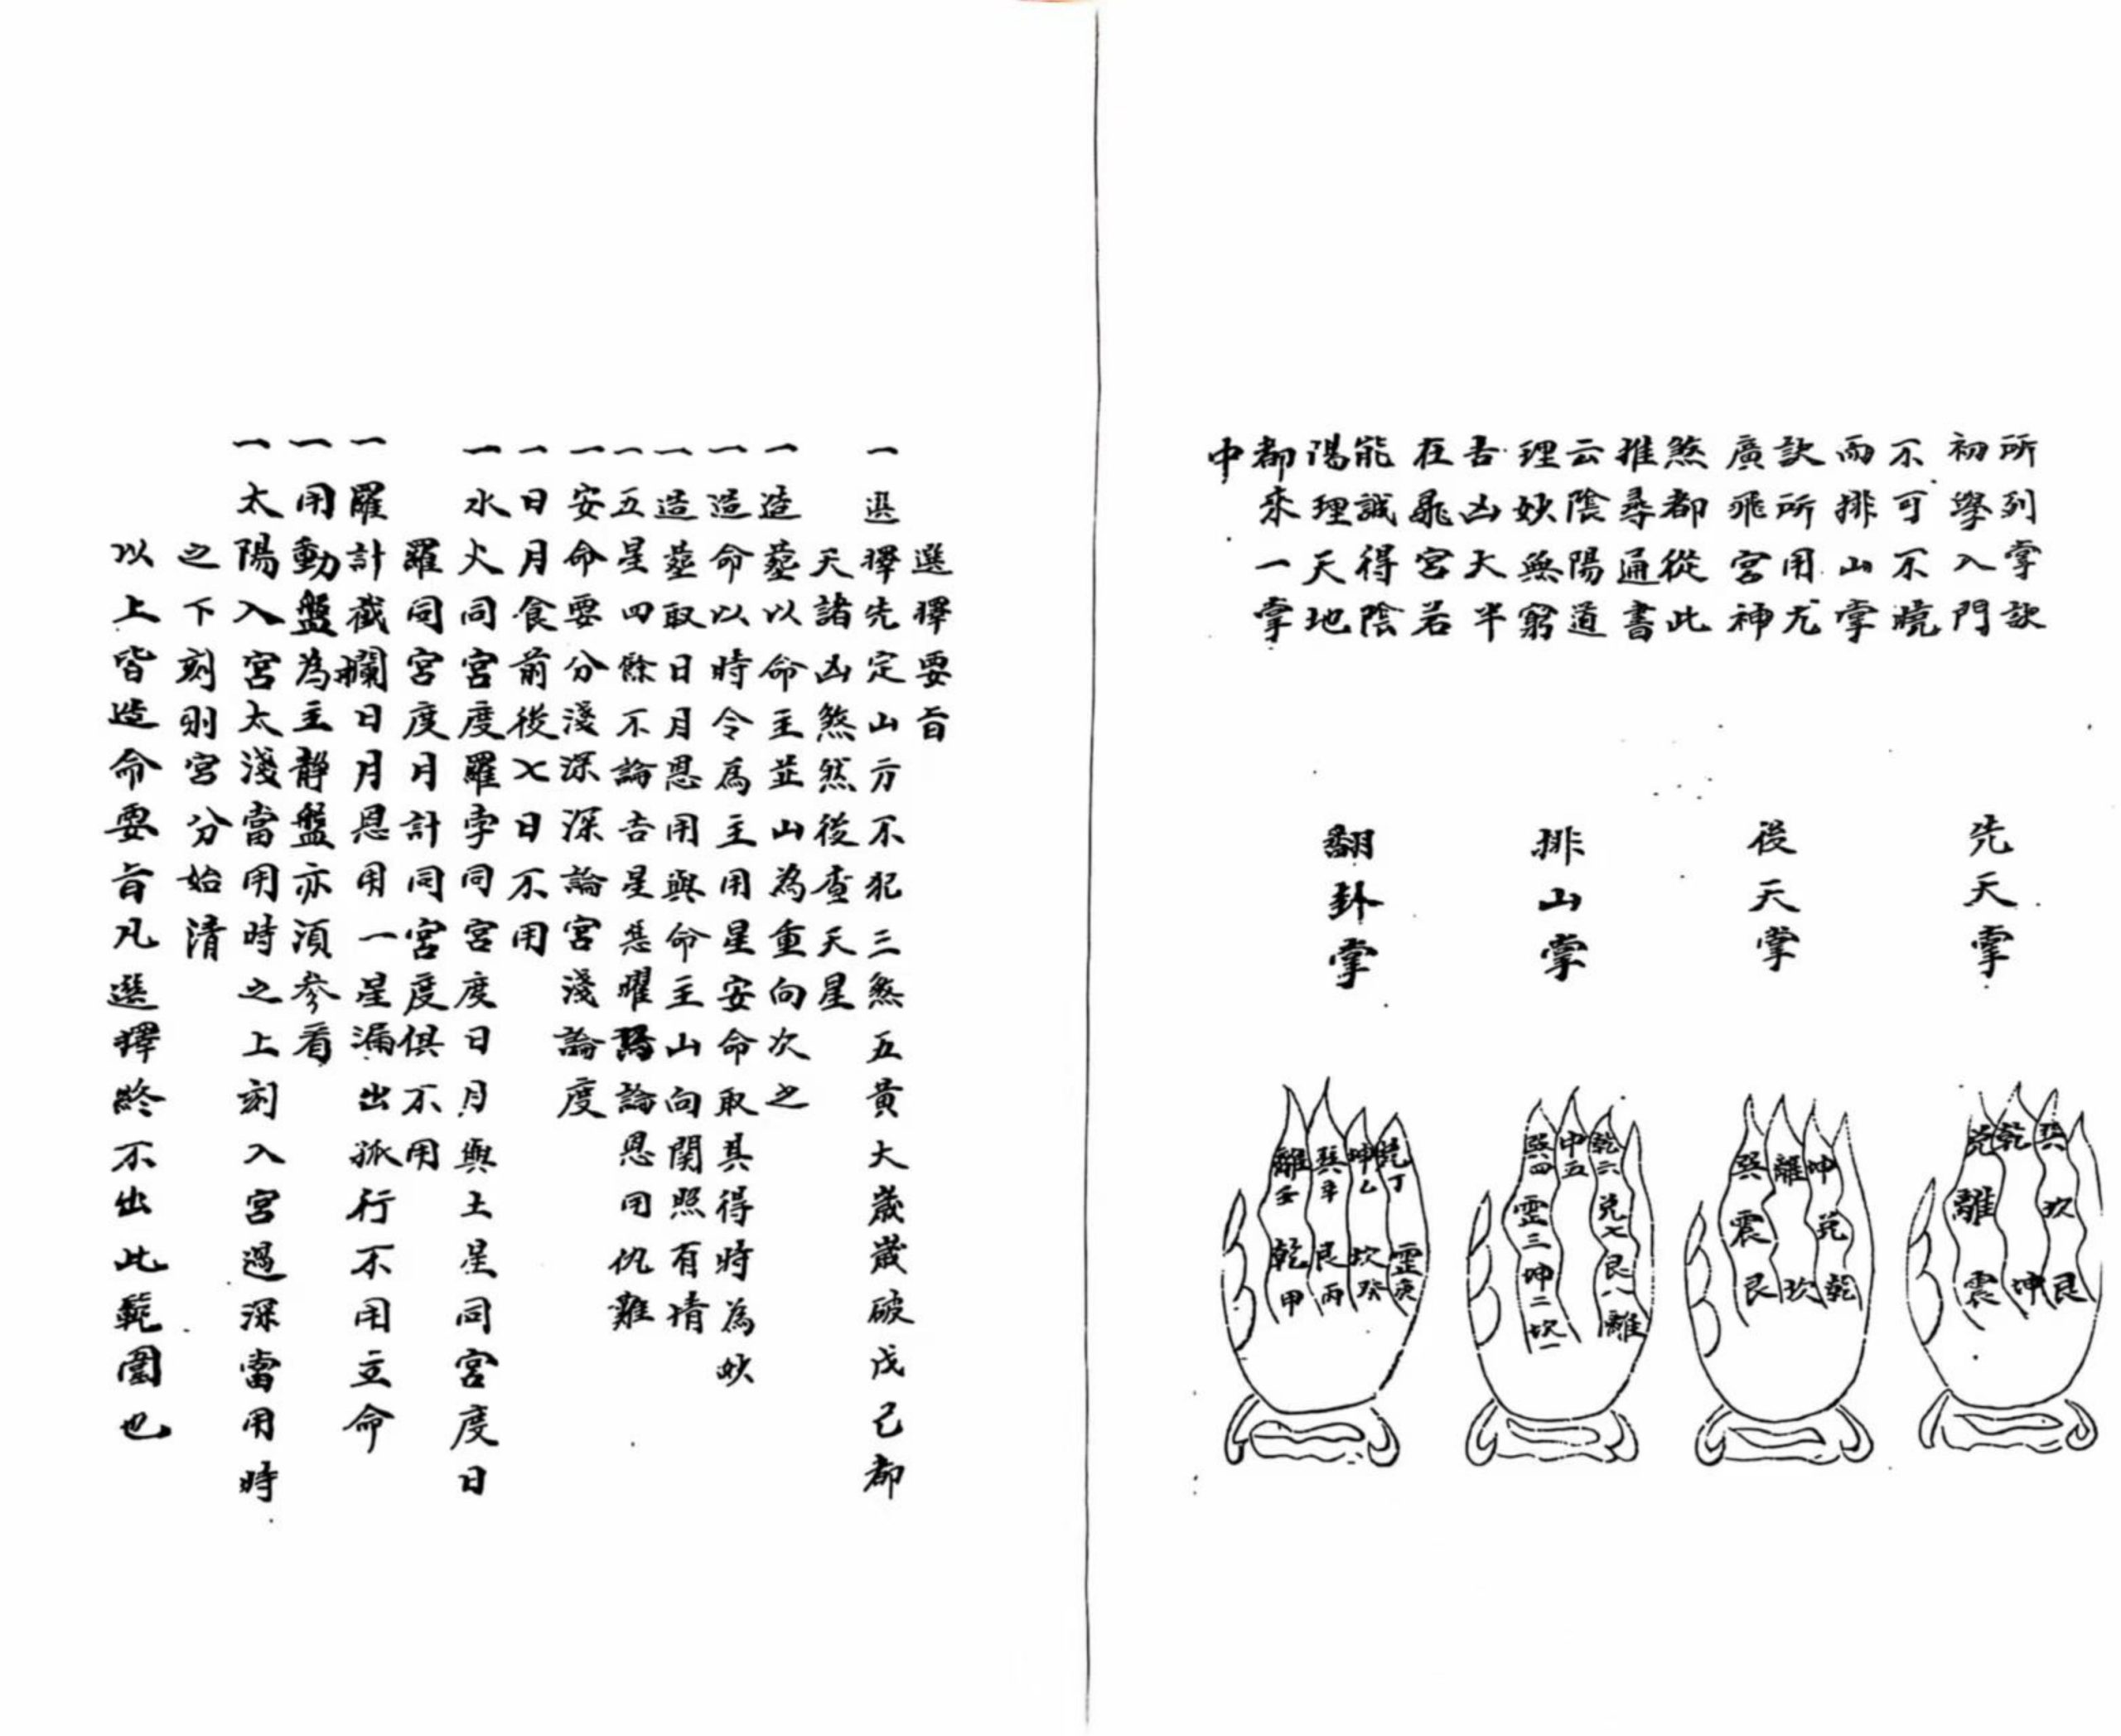 所列掌訣
初學入門
不可不曉
而排山掌
訣所用尤
廣飛宮神
煞都從此
推尋通書
云陰陽道
理妙無窮
吉凶大半
在飛宮若
能識得陰
陽理天地
都來一掌
中
先天掌
後天掌
排山掌
翻卦掌
兌 乾 巽
離 坎
震 坤 艮
巽 離 坤
震 兌
艮 坎 乾
巽四 中五 乾六
震三 兌七
坤二 艮八
坎一 離
離壬 巽辛 坤乙 乾丁
乾甲 艮丙 坎癸 震庚
選擇要旨
一選擇先定山方不犯三煞五黃大歲歲破戊己都
天諸凶煞然後查天星
一造塟以命主並山為重向次之
一造命以時令為主用星安命取其得時為妙
一造塟取日月恩用與命主山向関照有情
一五星四餘不論吉星惡曜專論恩用仇難
一安命要分淺深深論宮淺論度
一日月食前後七日不用
一水火同宮度羅孛同宮度日月與土星同宮度日
羅同宮度月計同宮度俱不用
一羅計截攔日月恩用一星漏出孤行不用立命
一用動盤為主靜盤亦須參看
一太陽入宮太淺當用時之上刻入宮過深當用時
之下刻則宮分始清
以上皆造命要旨凡選擇終不出此範圍也